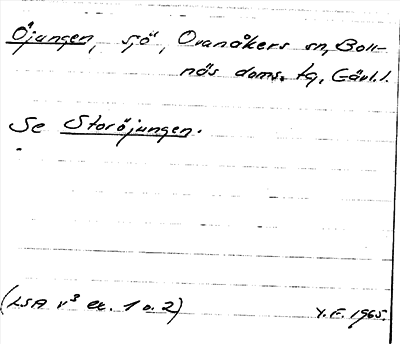 Öjungen, sjö, Ovanåkers sn, Boll-
näs doms. tg, Gävl. l.
Se Storöjungen.
(LSA v³ ex. 1 o. 2)
Y.E. 1965.